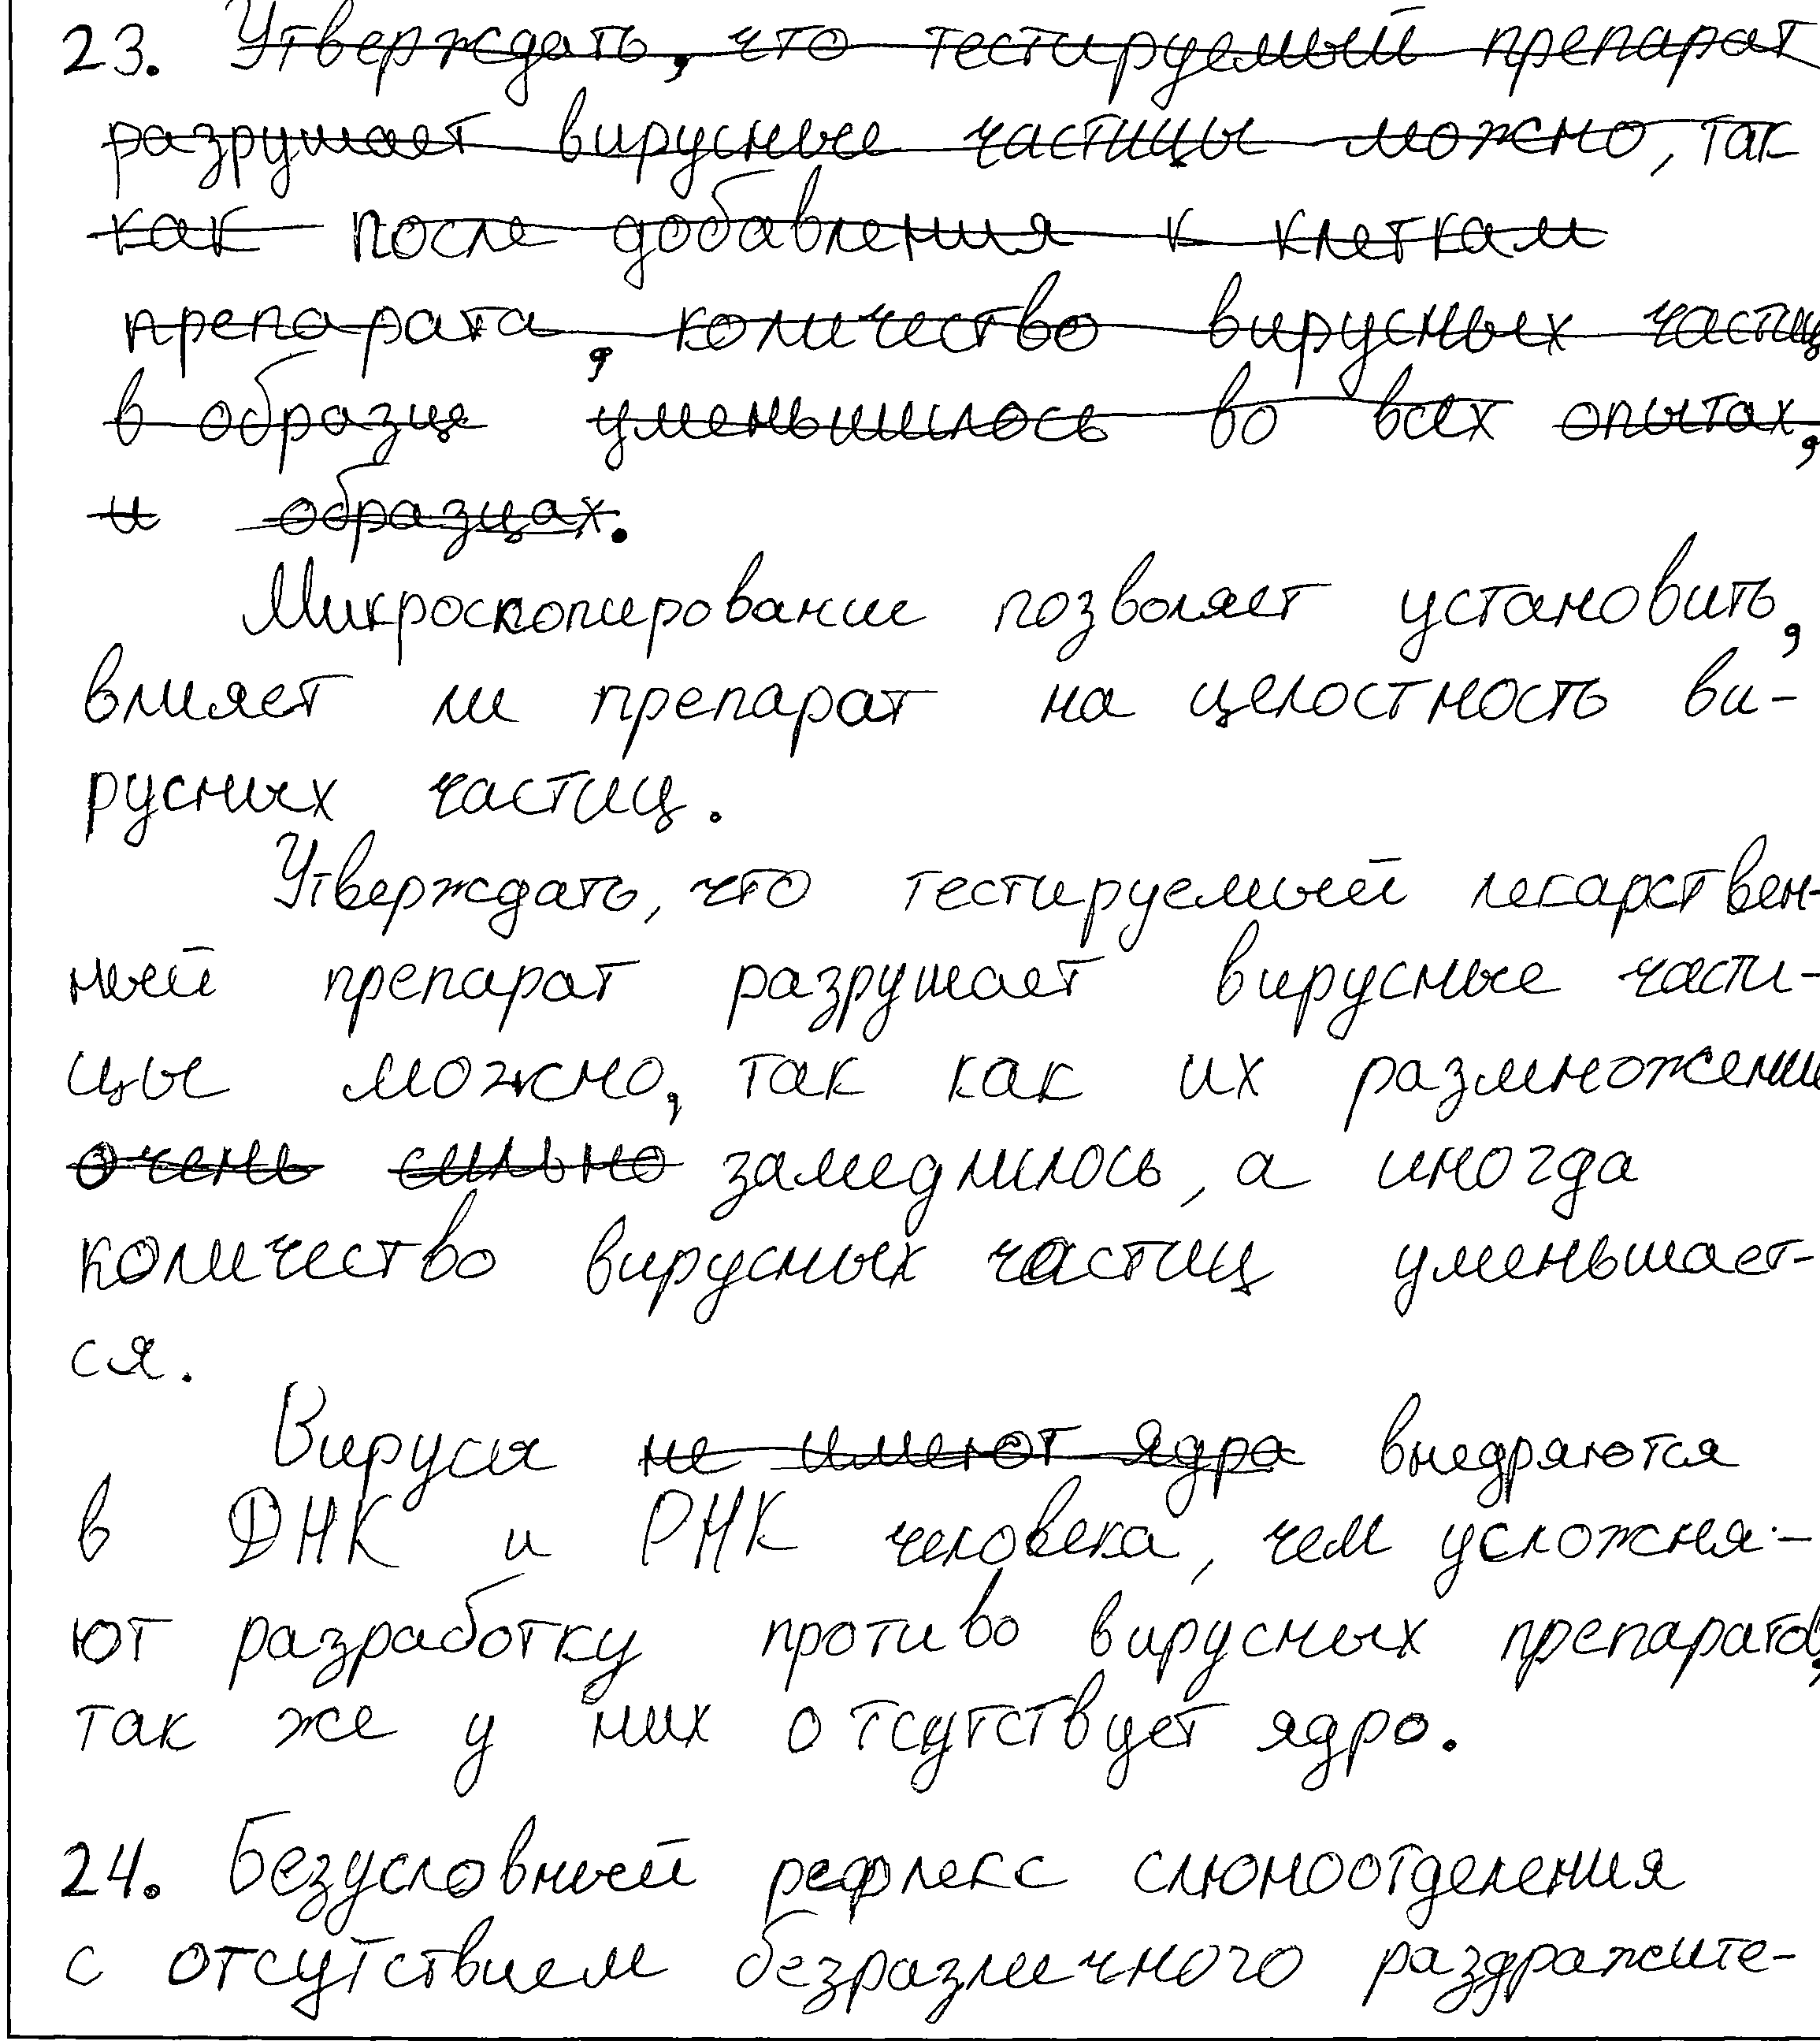 23. Утверждать, что тестируемый препарат
разрушает вирусные частицы можно, так
как после добавления к клеткам
препарата, количество вирусных частиц
в образце уменьшилось во всех опытах,
и образцах.
Микроскопирование позволяет установить,
влияет ли препарат на целостность ви-
русных частиц.
Утверждать, что тестируемый лекарствен-
ный препарат разрушает вирусные части-
цы можно, так как их размножение
очень сильно замедлилось, а иногда
количество вирусных частиц уменьшает-
ся.
Вирусы не имеют ядра внедряются
в ДНК и РНК человека, чем усложня-
ют разработку противо вирусных препаратов,
так же у них отсутствует ядро.
24. Безусловный рефлекс слюноотделения
с отсутствием безразличного раздражите-